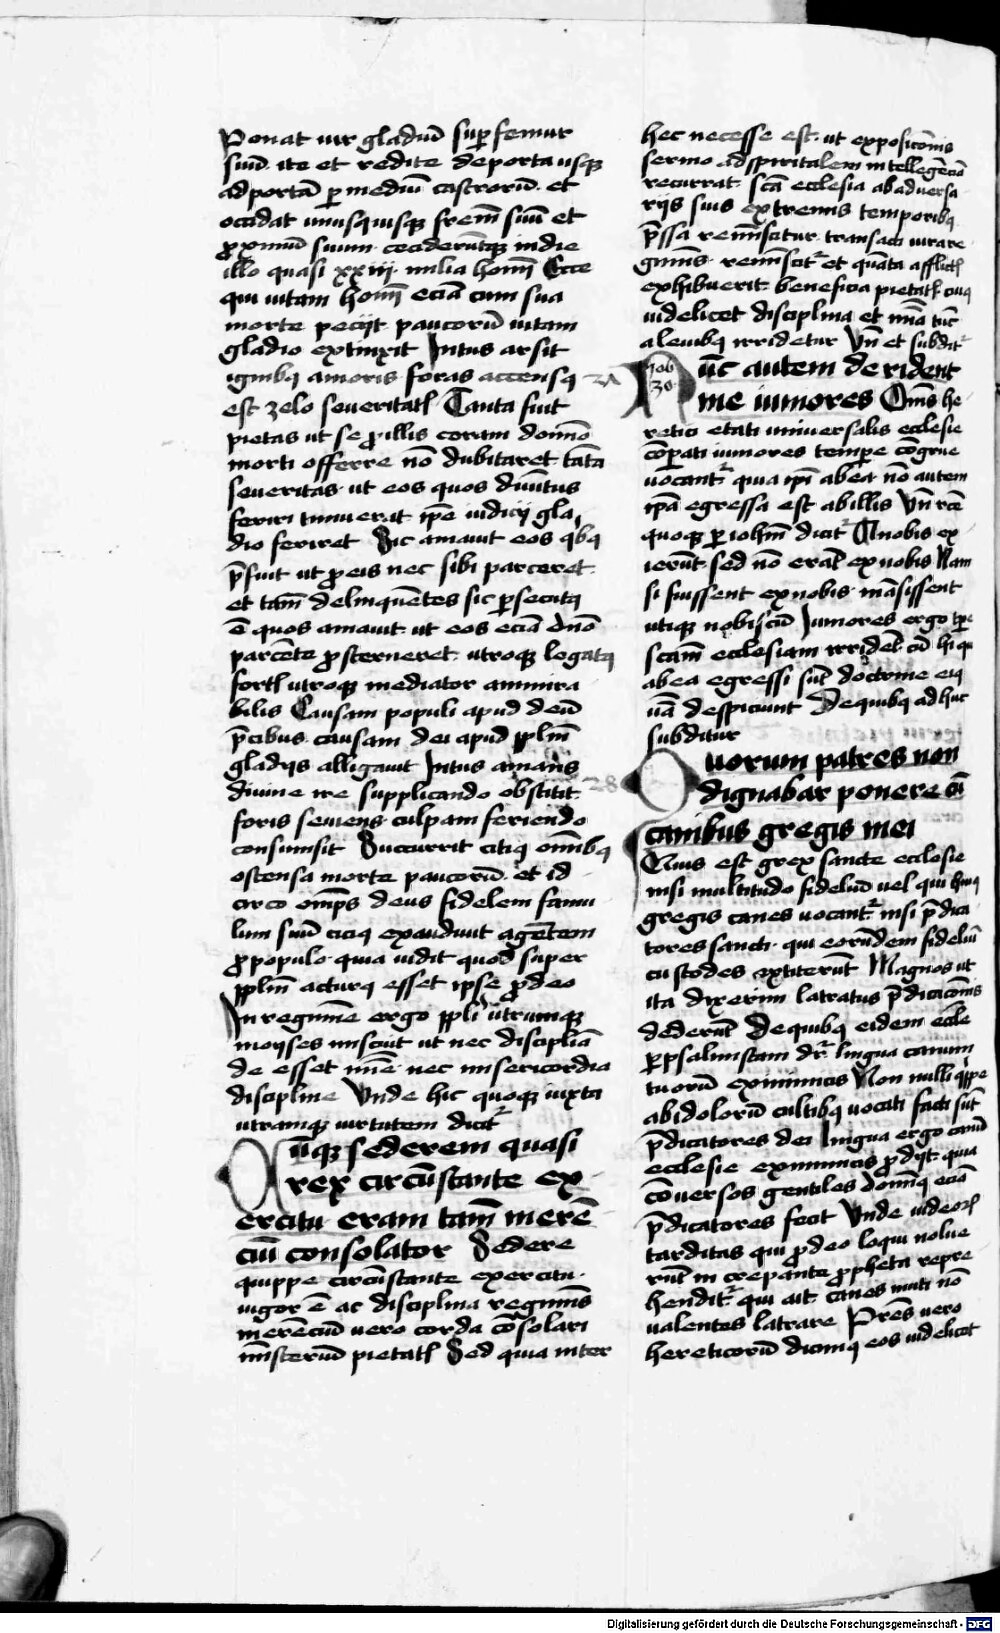 Ponat uir gladiū sup femur
suū. ite et redite de porta usq;
ad portā p mediū castrorū. et
occidat unusquisq; frem̄ suū et
ꝓximū suum. cecideruntq; in die
illo quasi xxiij. milia homī Ecce
qui uitam homī eciā cum sua
morte peciit. paucorū uitam
gladio extinxit Intus arsit
ignibꝫ amoris. foras accensꝫ
est zelo seueritatꝭ Tanta fuit
pietas ut se ꝓ illis coram domō
morti offerre nō dubitaret. tāta
seueritas. ut eos quos diuītus
feriri timuerat ip̄e iudicij gla
dio feriret Sic amauit eos qͥbꝫ
p̄fuit ut ꝓ eis nec sibi parceret.
et tam̄ delinquētes sic ꝑsecutꝫ
ē quos amauit. ut eos eciā dn̄o
parcēte ꝓsterneret. utroq; legatꝫ
fortꝭ utroq; mediator ammira
bilis Causam populi apud deū
p̄cibus. causam dei apud pplm̄
gladijs alligauit Intus amans
diuine ire supplicando obstitit.
foris seuiens culpam feriendo
consumsit Succurrit citiꝫ om̄ibꝫ
ostensa morte paucorū. et id
circo omp̄s deus fidelem famu
lum suū citiꝫ exaudiuit agētem
ꝓ populo. quia uidit quod super
pplm̄ acturꝫ esset ipse ꝓ deo
In regimīe ergo ppli utrumq;
moyses miscuit ut nec discipliā
de esset mīe. nec misericordia
discipline Unde hic quoq; iuxta
utramq; uirtutem dicit᷑
Cūq; sederem quasi
rex circūstante ex
ercitu. eram tam̄ merē
ciū consolator Sedere
quippe circūstante exercitu.
uigor ē ac disciplina regimīs
merēciū uero corda cōsolari
mīsteriū pietatꝭ Sed quia inter
hec necesse est. ut exposicōnis
sermo ad spiritalem intellegēciā
recurrat. scā ecclesia ab aduersa
rijs suis extremis temporibꝫ
p̄ssa reminiscitur. transacti sui re
gimīs. reminiscit᷑ et quāta afflictꝭ
exhibuerit. beneficia pietatꝭ cuiꝫ
uidelicet disciplina et mīa tūc
a leuibꝫ irridetur Vn̄ et subdit᷑
Nūc autem derident
Job
30
me iuniores Om̄s he
retici etati uniuersalis ecclesie
cōpati iuniores tempe cōgrue
uocant᷑. quia ip̄i ab ea. nō autem
ip̄a egressa est ab illis Vn̄ rcē
quoq; ꝑ iohm̄ dicit᷑ A nobis ex
ierūt. sed nō erāt ex nobis Nam
si fuissent ex nobis. māsissent
utiq; nobiscū Iuniores ergo tpe
scam̄ ecclesiam irridēt. cū hi qui
ab ea egressi sūt doctrine eiꝫ
uiā despiciunt De quibꝫ adhuc
subditur
Quorum patres non
28
dignabar ponere cū
canibus gregis mei
Quis est grex sancte ecclesie
nisi multitudo fideliū uel qui huiꝫ
gregis canes uocant᷑. nisi p̄dica
tores sancti. qui eorūdem fideliū
custodes extiterūt Magnos ut
ita dixerim latratus p̄dicacōnis
dederūt De quibꝫ eidem eccle
ꝑ psalmistam dr̄. lingua canum
tuorū ex inimicis Non nulli qͥppe
ab idolorū cultibꝫ uocati facti sūt
p̄dicatores dei Lingua ergo canū
ecclesie ex inimicis ꝓdijt. quia
cōuersos gentiles domīꝫ eciā
p̄dicatores fecit Unde iudeorꝭ
tarditas qui ꝓ deo loqui nolue
rūt increpante ꝓpheta repre
hendit᷑. qui ait. canes muti nō
ualentes latrare Pres̄ uero
hereticorū dicimꝫ eos uidelicet
Digitalisierung gefördert durch die Deutsche Forschungsgemeinschaft - DFG